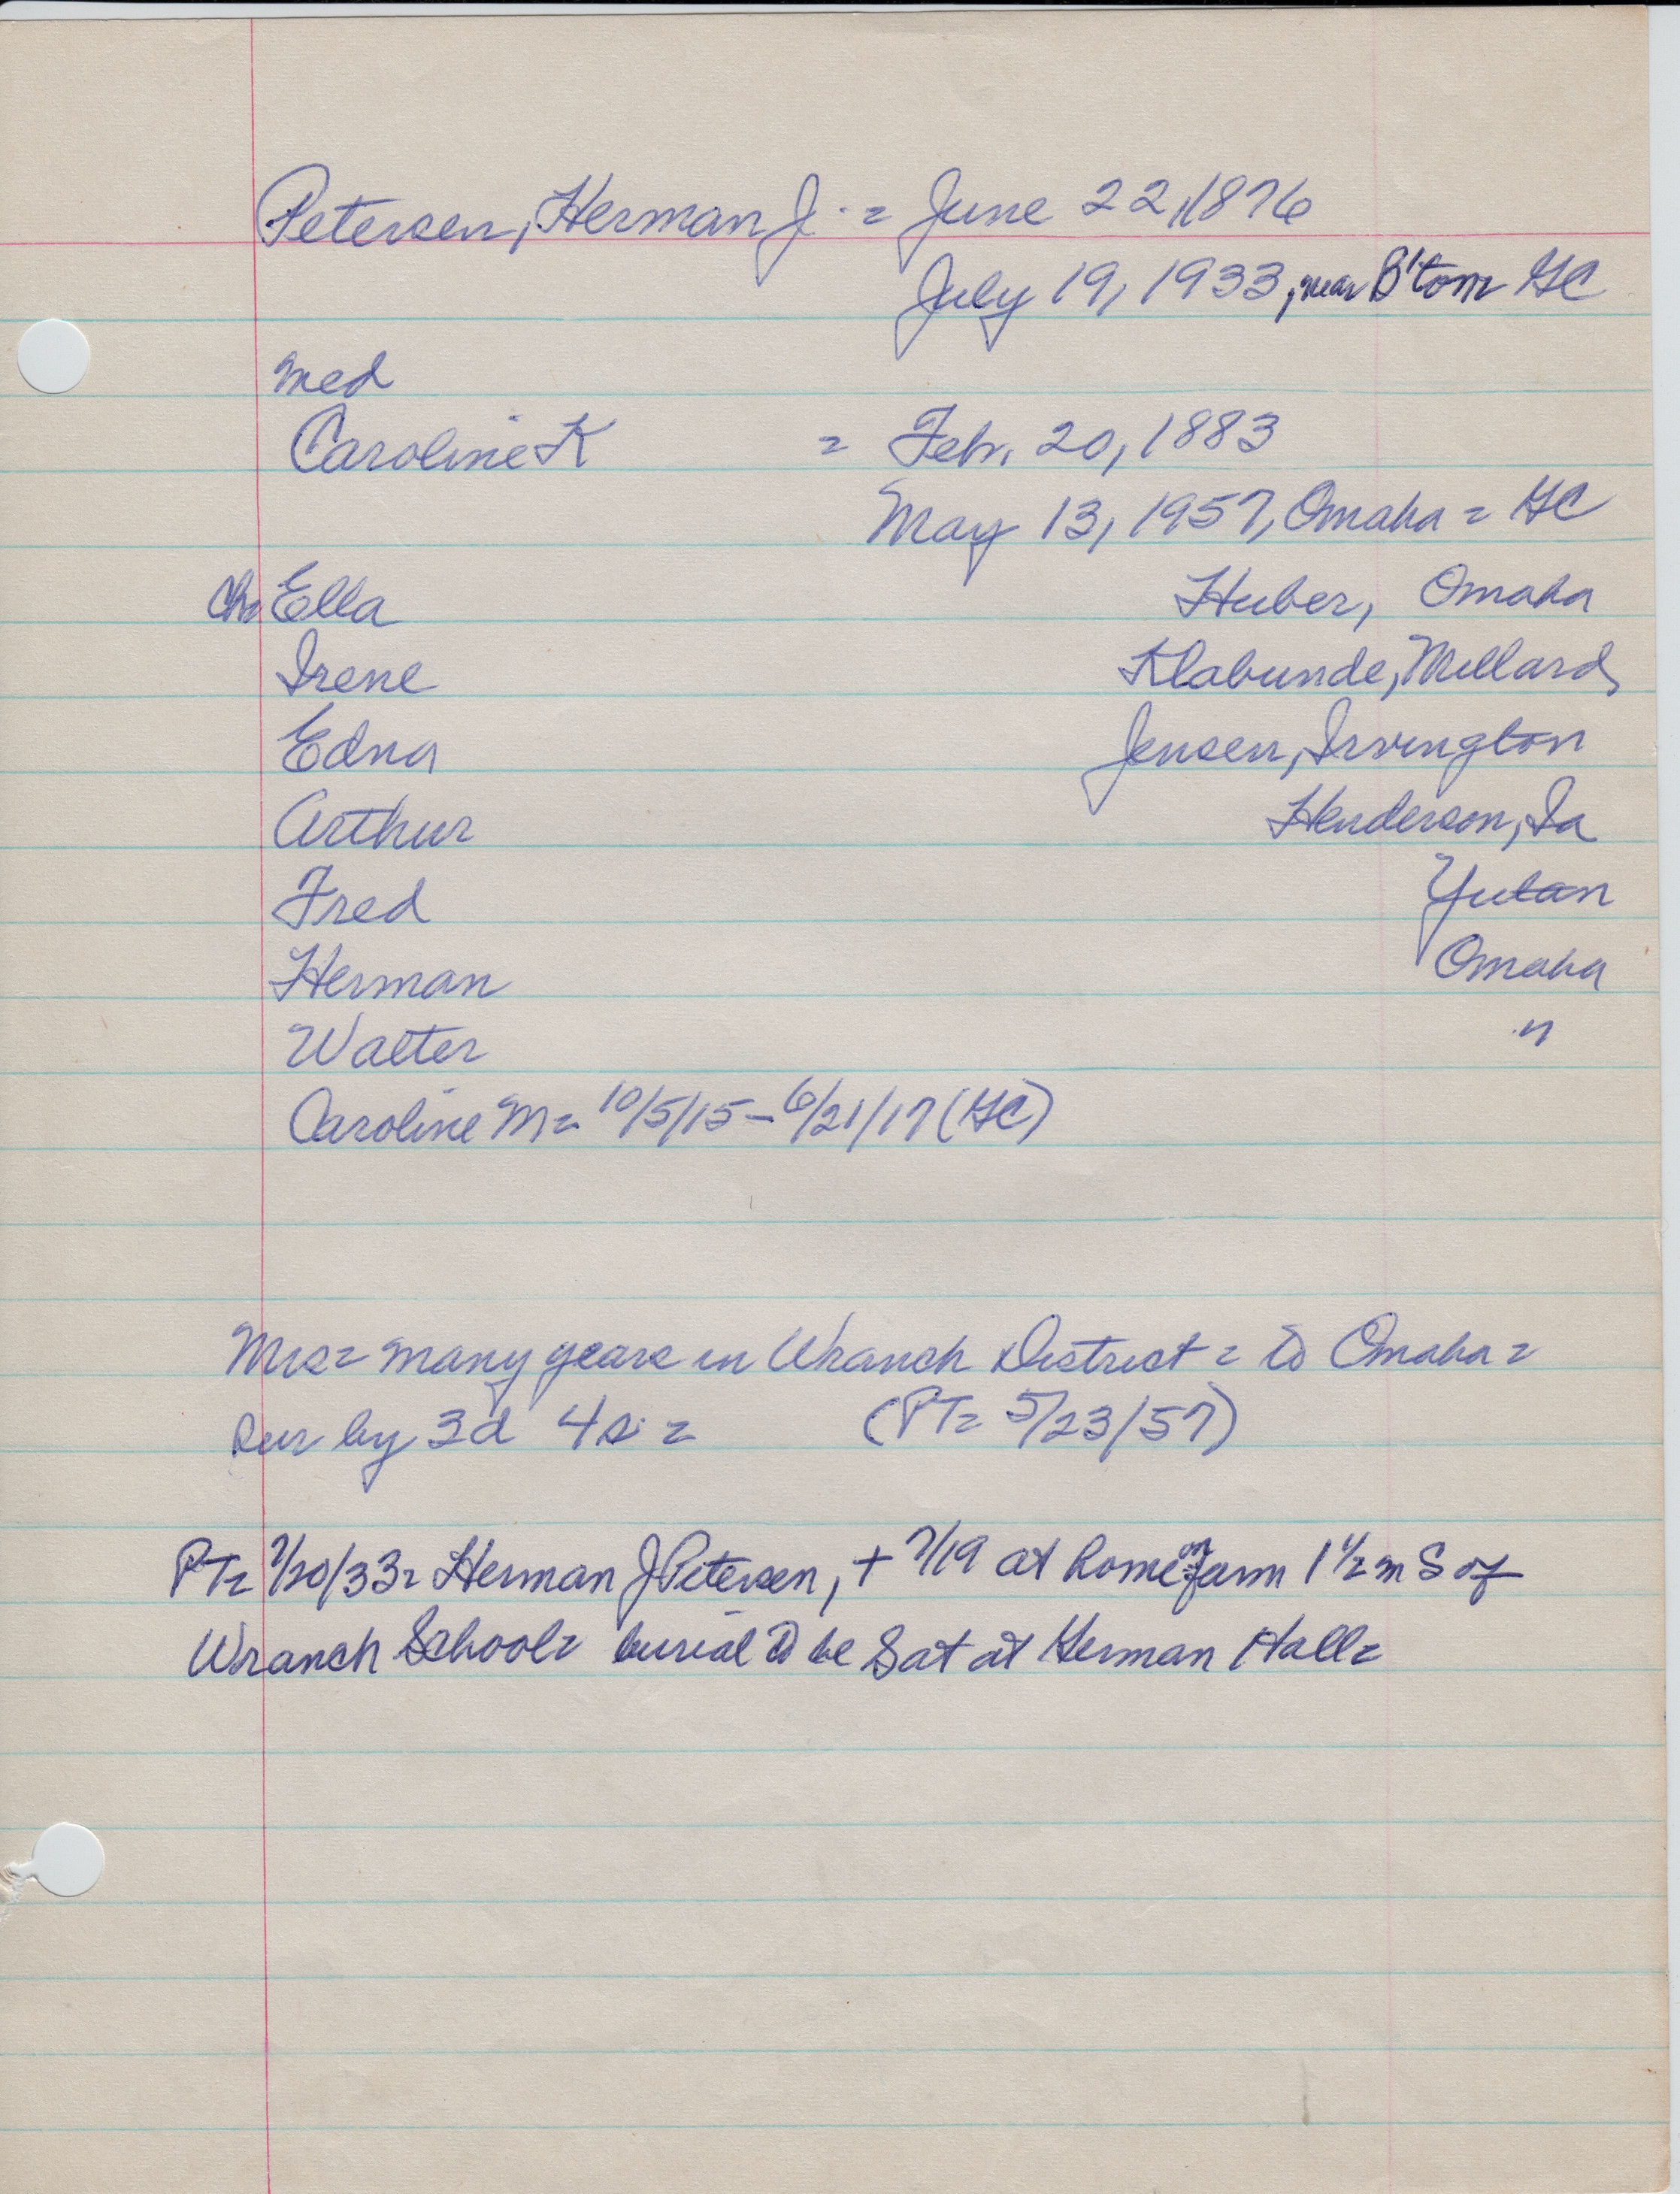 Petersen, Herman J. = June 22, 1876
July 19, 1933, near B'tom GC
med
Caroline K = Feb. 20, 1883
May 13, 1957, Omaha = GC
Ch Ella Huber, Omaha
Irene Klabunde, Millard
Edna Jensen, Irvington
Arthur Henderson, Ia
Fred Yutan
Herman Omaha
Walter "
Caroline M = 10/5/15 - 6/21/17 (GC)
Mrs = many years in Wranch District = to Omaha =
sur by 3d 4s = (PT = 5/23/57)
PT = 7/20/33 = Herman J Petersen, + 7/19 at home on farm 1 1/2 m S of
Wranch School = burial to be Sat at German Hall =